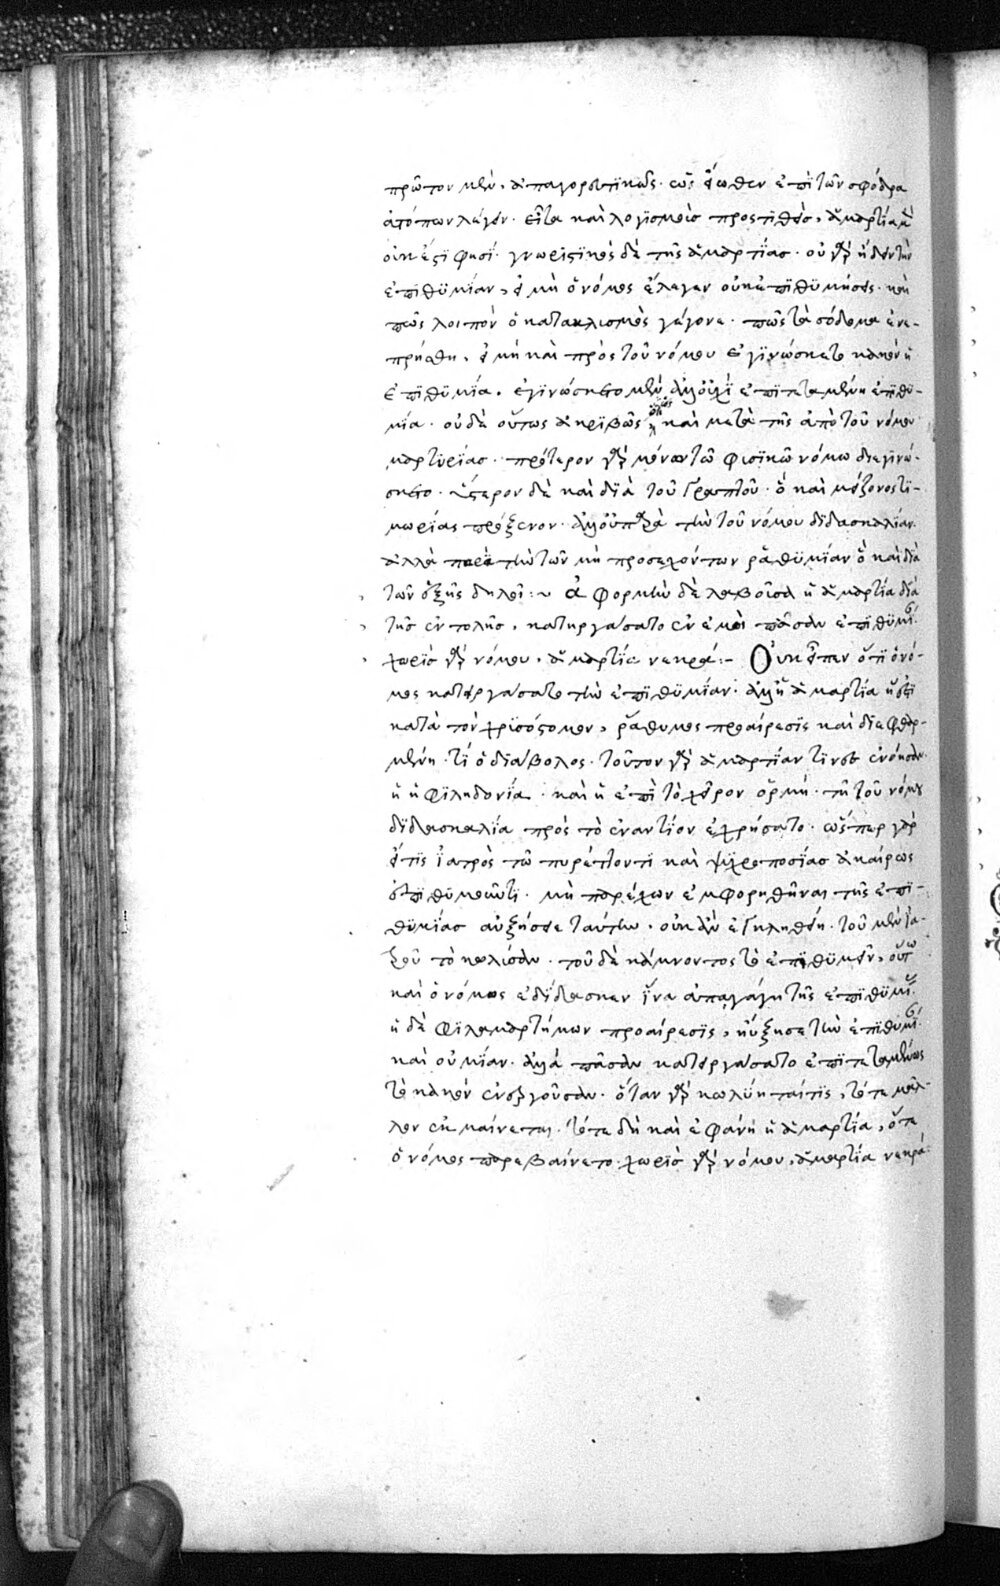 πρῶτον μὲν, ἀπαγορευτικῶς. ὡς εἴωθεν ἐπὶ τῶν σφόδρα
ἀτόπων λέγειν. εἶτα καὶ λογισμοῖς προστιθείς, ἁμαρτία μὲν
οὐκ ἔστι φησί. γνωριστικὸς δὲ τῆς ἁμαρτίας. οὐ γὰρ ᾔδειν τὴν
ἐπιθυμίαν, εἰ μὴ ὁ νόμος ἔλεγεν οὐκ ἐπιθυμήσεις. καὶ
πῶς λοιπὸν ὁ κατακλισμὸς γέγονε. πῶς τὰ σόδομα ἐνε-
πρήσθη, εἰ μὴ καὶ πρὸ τοῦ νόμου ἐγινώσκετο κακὸν ἡ
ἐπιθυμία. ἐγινώσκετο μὲν ἀλλ' οὐχὶ ἐπιτεταμένη ἐπιθυ-
μία. οὐδὲ οὕτως ἀκριβῶς καὶ μετὰ τῆς ἀπὸ τοῦ νόμου
μαρτυρίας. πρότερον γὰρ μόνον τῷ φυσικῷ νόμω διεγινώ-
σκετο. ὕστερον δὲ καὶ διὰ τοῦ γραπτοῦ. ὃ καὶ μείζονος τι-
μωρίας πρόξενον. ἀλλ' οὐ παρὰ τὴν τοῦ νόμου διδασκαλίαν.
ἀλλὰ παρὰ τὴν τῶν μὴ προσεχόντων ῥαθυμίαν ὃ καὶ διὰ
τῶν ἑξῆς δηλοῖ :~ ἀφορμὴν δὲ λαβοῦσα ἡ ἁμαρτία διὰ
τῆς ἐντολῆς, κατηργάσατο ἐν ἐμοὶ πᾶσαν ἐπιθυμί.
χωρὶς γὰρ νόμου, ἁμαρτία νεκρά :- Οὐκ εἶπεν ὅτι ὁ νό-
μος κατειργάσατο τὴν ἐπιθυμίαν. ἀλλ' ἡ ἁμαρτία ἥ ἐστι
κατὰ τὸν χρισόστομον, ῥάθυμος προαίρεσις καὶ διεφθαρ-
μένη. τὶ ὁ διάβολος. τοῦτον γὰρ ἁμαρτίαν τινὲς ἐνόησαν.
ἢ ἡ φιληδονία. καὶ ἡ ἐπὶ τὸ χεῖρον ὁρμή. τῇ τοῦ νόμου
διδασκαλία πρὸς τὸ ἐναντίον ἐχρήσατο. ὥσπερ γὰρ
εἴ τις ἰατρὸς τῶ πυρέττοντι καὶ ψυχροποσίας ἀκαίρως
ἐπιθυμοῦντι. μὴ παρέχων ἐμφορηθῆναι τῆς ἐπι-
θυμίας αὐξήσει ταύτην, οὐκ ἂν ἐγκληθείη. τοῦ μὲν ἰα-
τροῦ τὸ κωλύσαι. τοῦ δὲ κάμνοντος τὸ ἐπιθυμεῖν, οὕτω
καὶ ὁ νόμος ἐδίδασκεν ἵνα ἀπαγάγη τῆς ἐπιθυμί.
ἡ δὲ φιλαμαρτήμων προαίρεσις, ηὔξησε τὴν ἐπιθυμί.
καὶ οὐ μίαν. ἀλλὰ πᾶσαν κατειργάσατο ἐπιτεταμένως
τὸ κακὸν ἐνεργοῦσαν. ὅταν γὰρ κωλύηταί τις, τότε μᾶλ-
λον ἐκμαίνεται. τότε δὴ καὶ ἐφάνη ἡ ἁμαρτία, ὅτε
ὁ νόμος παρεβαίνετο. χωρὶς γὰρ νόμου, ἁμαρτία νεκρά.